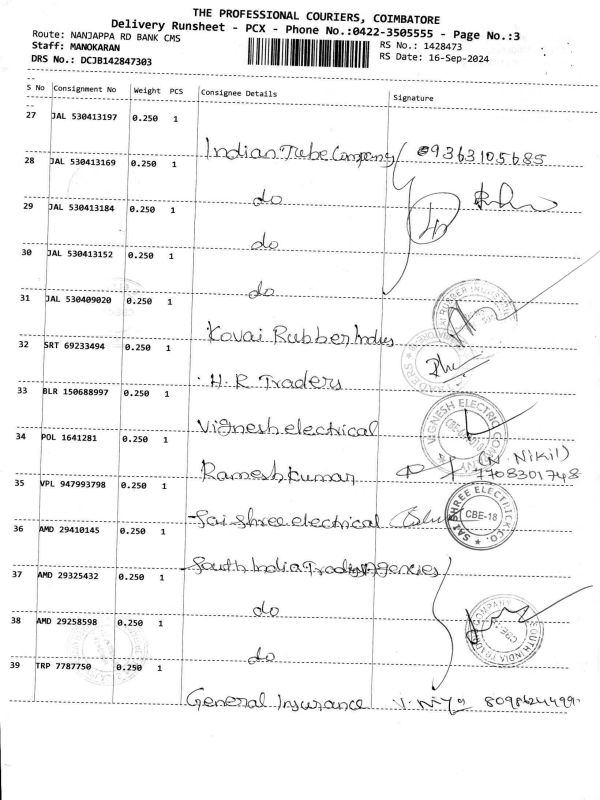 THE PROFESSIONAL COURIERS, COIMBATORE
Delivery Runsheet - PCX - Phone No.:0422-3505555 - Page No.:3
Route: NANJAPPA RD BANK CMS
RS No.: 1428473
Staff: MANOKARAN
RS Date: 16-Sep-2024
DRS No.: DCJB142847303
S No Consignment No Weight PCS Consignee Details Signature
27 JAL 530413197 0.250 1
Indian Tube Company 09363105685
28 JAL 530413169 0.250 1
do
29 JAL 530413184 0.250 1
do
30 JAL 530413152 0.250 1
do
31 JAL 530409020 0.250 1
Kovai Rubber Indus
32 SRT 69233494 0.250 1
H.R Traders
33 BLR 150688997 0.250 1
Vignesh electrical
VIGNESH ELECTRIC
34 POL 1641281 0.250 1
Rameshkumar (N. Nikil)
7708301748
35 VPL 947993798 0.250 1
Sai Shree electrical
SAI SHREE ELECTRIC CO.
CBE-18
36 AMD 29410145 0.250 1
South India Trading Agencies
37 AMD 29325432 0.250 1
do
SOUTH INDIA TRADING COMPANY
38 AMD 29258598 0.250 1
do
39 TRP 7787750 0.250 1
General Insurance